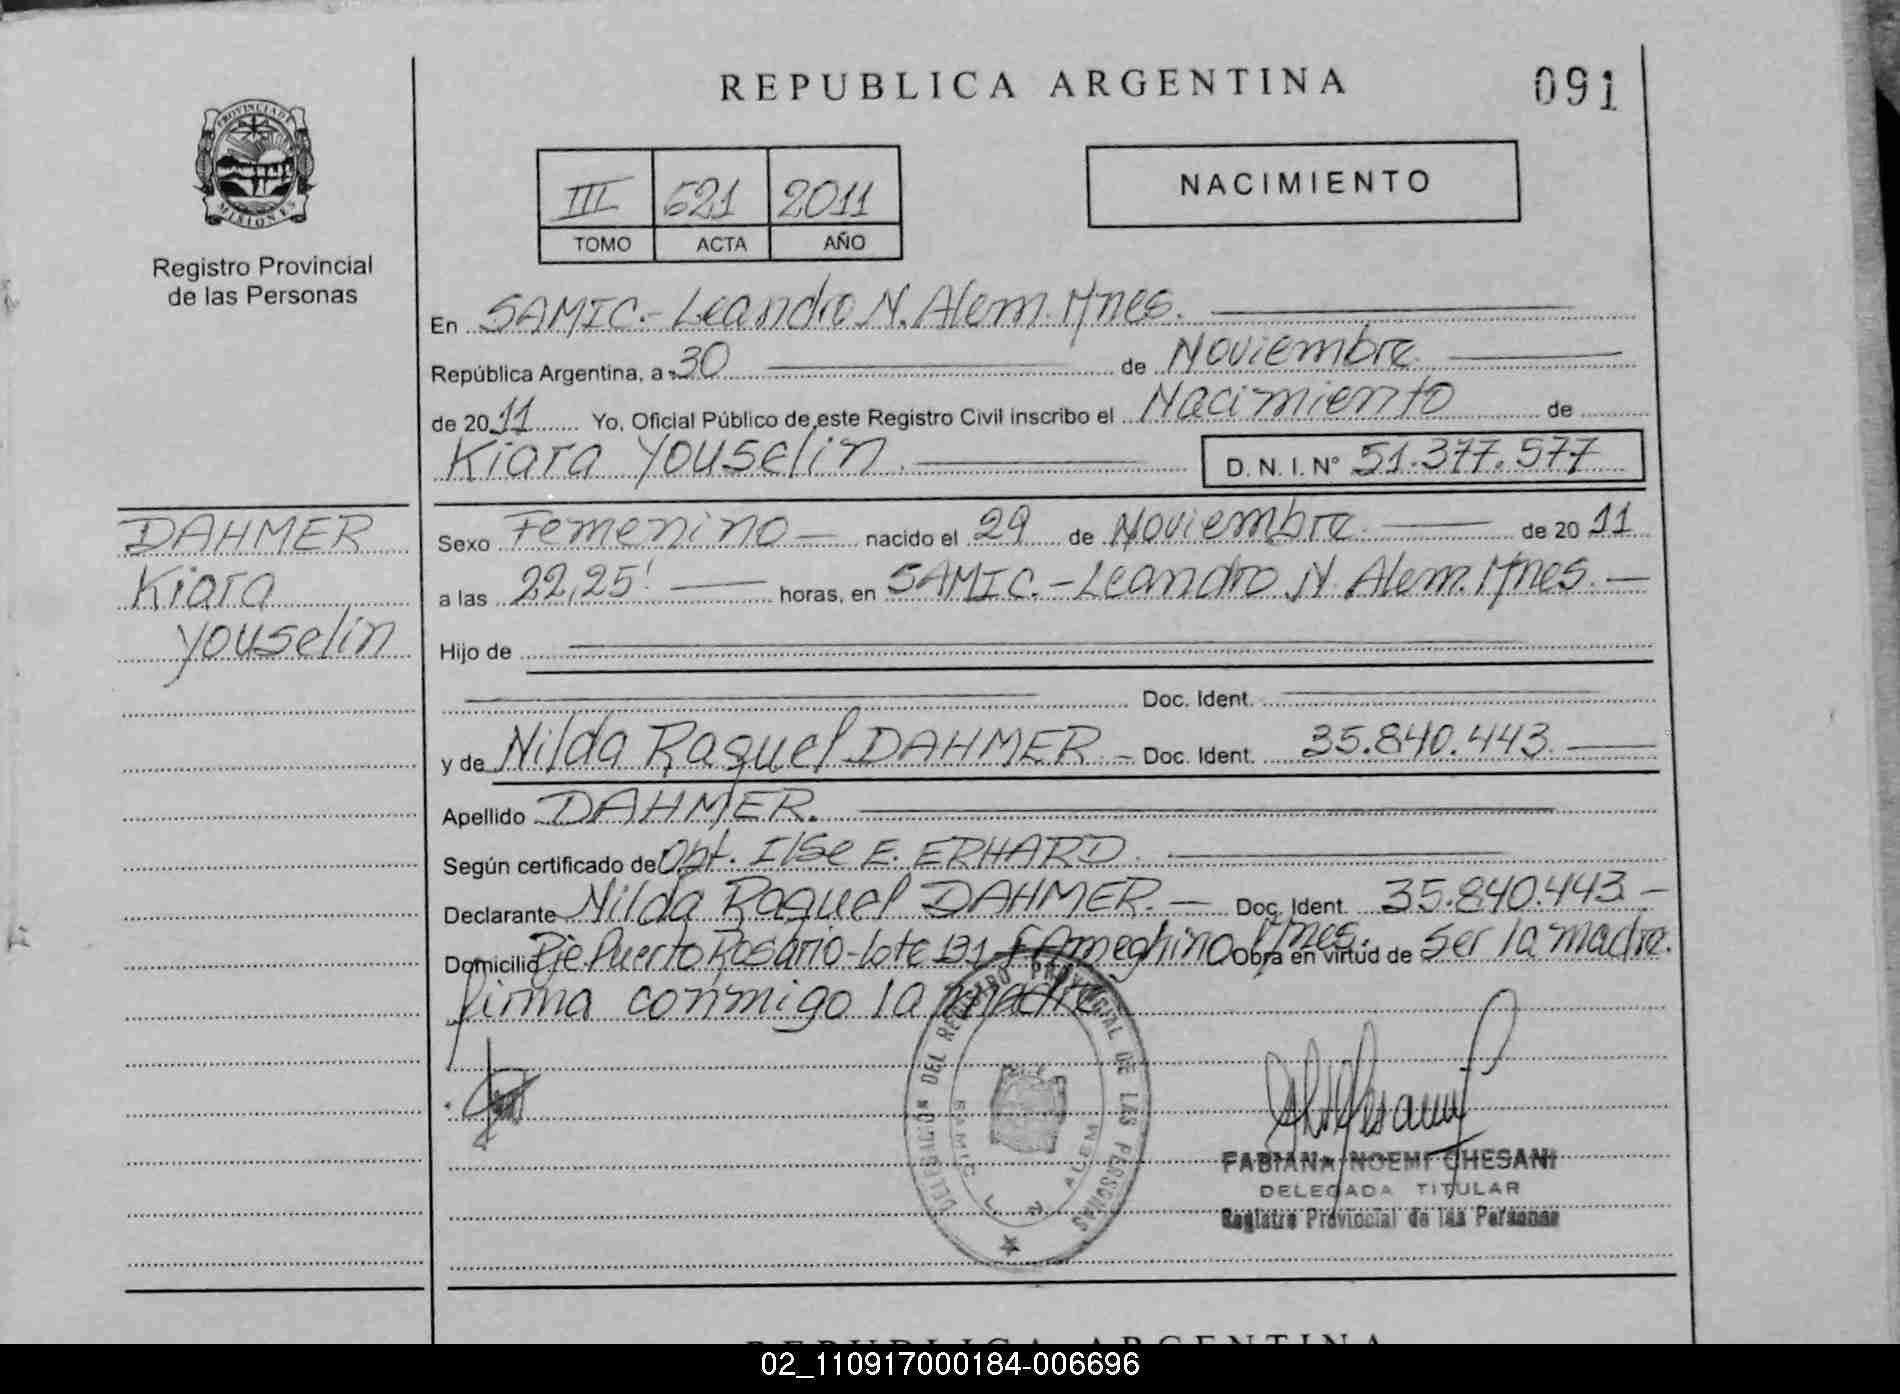 REPUBLICA ARGENTINA
091
PROVINCIA DE
MISIONES
Registro Provincial
de las Personas
III 621 2011
TOMO ACTA AÑO
NACIMIENTO
En SAMIC.- Leandro N. Alem. Mnes.
República Argentina, a 30 de Noviembre
de 2011 Yo, Oficial Público de este Registro Civil inscribo el Nacimiento de
Kiara Youselin. D.N.I.N° 51.377.577
DAHMER
Kiara
Youselin
Sexo Femenino nacido el 29 de Noviembre de 2011
a las 22,25' horas, en SAMIC.- Leandro N. Alem. Mnes.
Hijo de
Doc. Ident.
y de Nilda Raquel DAHMER - Doc. Ident. 35.840.443.
Apellido DAHMER.
Según certificado de Obt. Ilse E. ERHARD.
Declarante Nilda Raquel DAHMER. - Doc. Ident. 35.840.443-
Domicilio Pje. Puerto Rosario-Lote 131 F. Ameghino Mnes. Obra en virtud de Ser la madre.
firma conmigo la madre
DELEGACION DEL REGISTRO PROVINCIAL DE LAS PERSONAS
SAMIC L. N. ALEM
FABIANA NOEMI CHESANI
DELEGADA TITULAR
Registro Provincial de las Personas
REPUBLICA ARGENTINA
02_110917000184-006696